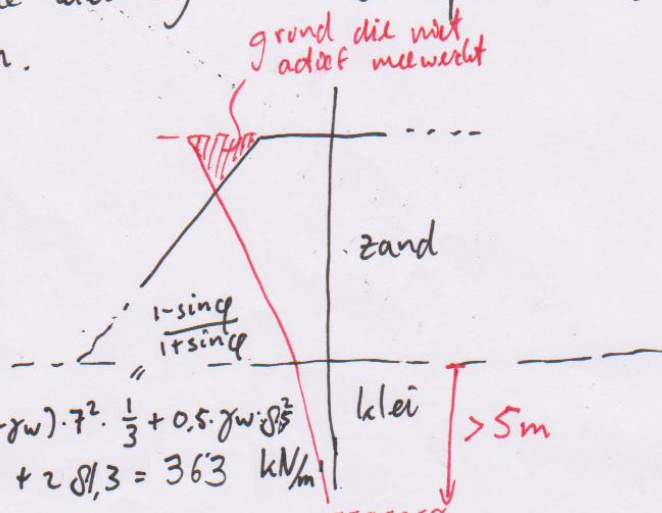 n.
grond die niet
actief meewerkt
zand
1-sinφ
1+sinφ
"
-γw)·7²·1/3+0,5·γw·8,5²
klei
>5m
+281,3=363 kN/m